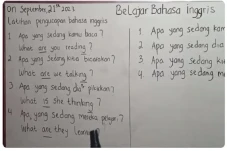 On September, 21st 2023
Belajar Bahasa inggris
Latihan pengucapan bahasa inggris
1 Apa yang sedang kamu baca ?
What are you reading ?
2 Apa yang sedang kita bicarakan ?
What are we talking ?
3 Apa yang sedang dia pikirkan ?
What is she thinking ?
4 Apa yang sedang mereka ?
What are they
1 Apa yang sedang kam
2 Apa yang sedang dia
3 Apa yang sedang
4. Apa yang sedang